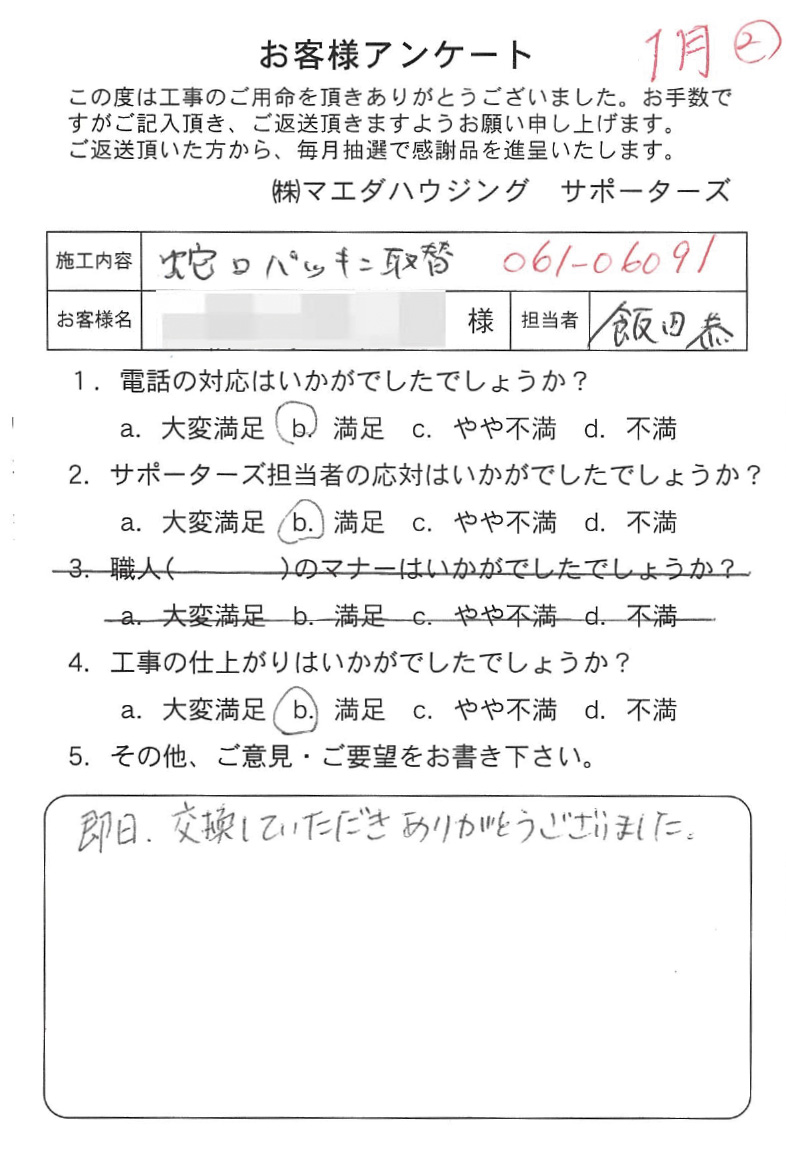 お客様アンケート
1月 ②
この度は工事のご用命を頂きありがとうございました。お手数で
すがご記入頂き、ご返送頂きますようお願い申し上げます。
ご返送頂いた方から、毎月抽選で感謝品を進呈いたします。
㈱マエダハウジング サポーターズ
施工内容 蛇口パッキン取替 061-06091
お客様名 様 担当者 飯田恭
1. 電話の対応はいかがでしたでしょうか？
a. 大変満足 b. 満足 c. やや不満 d. 不満
2. サポーターズ担当者の応対はいかがでしたでしょうか？
a. 大変満足 b. 満足 c. やや不満 d. 不満
3. 職人( )のマナーはいかがでしたでしょうか？
a. 大変満足 b. 満足 c. やや不満 d. 不満
4. 工事の仕上がりはいかがでしたでしょうか？
a. 大変満足 b. 満足 c. やや不満 d. 不満
5. その他、ご意見・ご要望をお書き下さい。
即日、交換していただきありがとうございました。